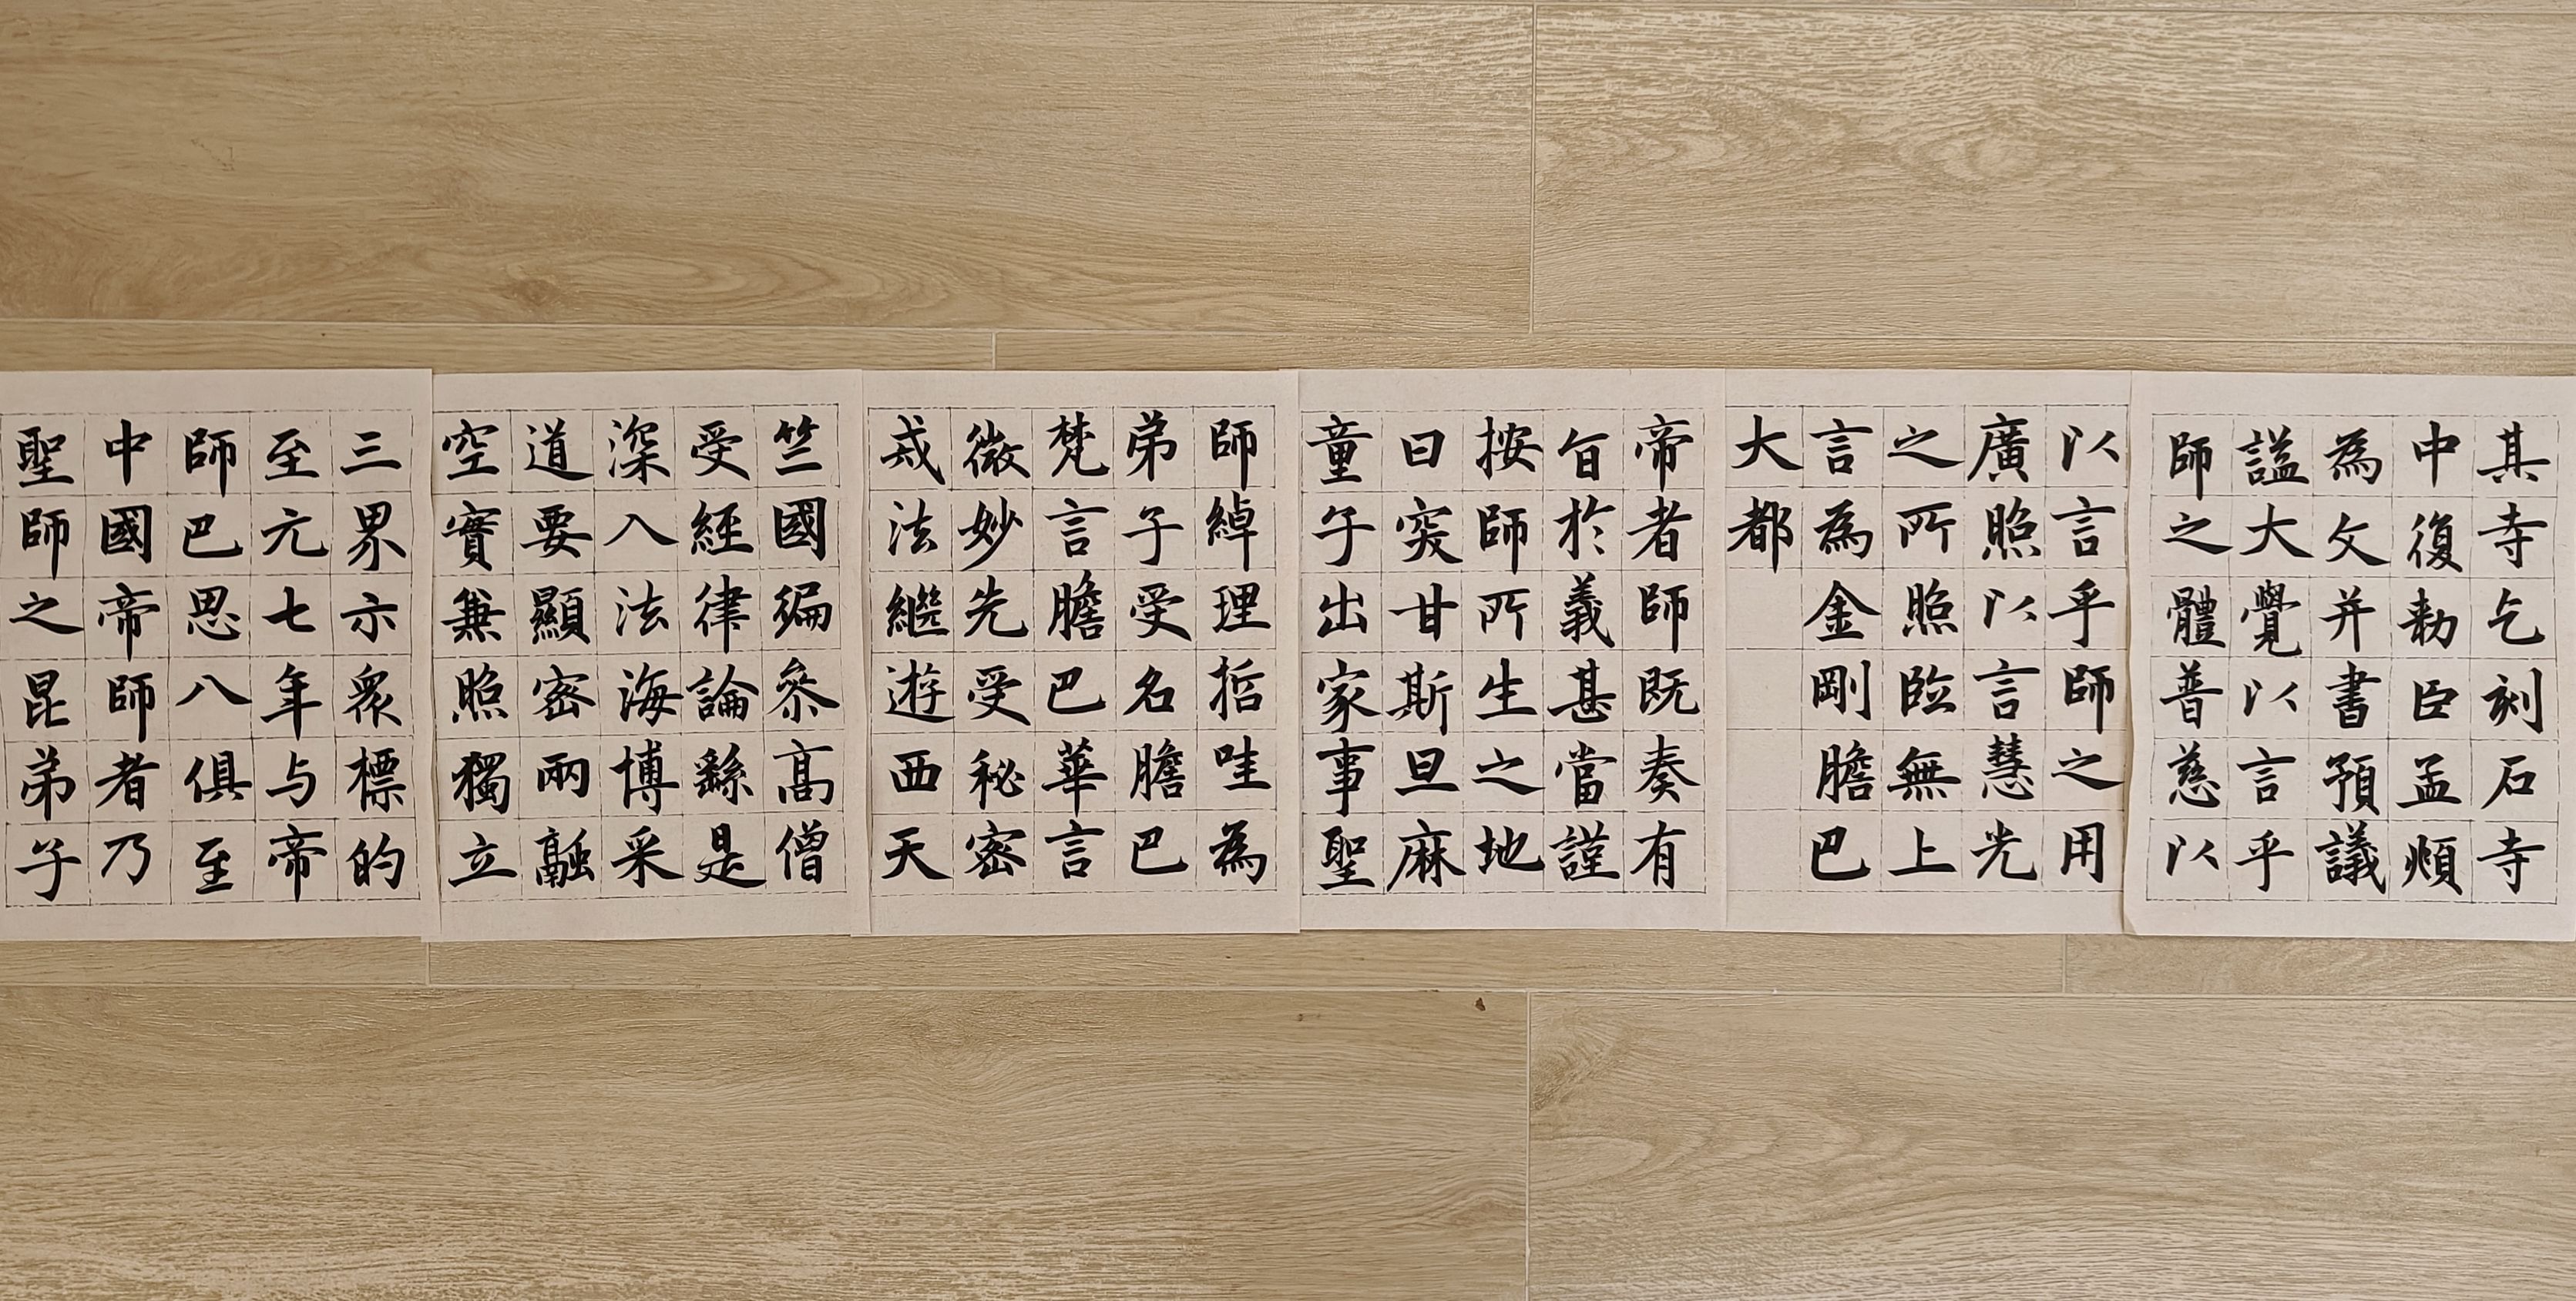 其寺乞刻石寺
中復勅臣孟頫
為文并書預議
謚大覺以言乎
師之體普慈以
以言乎師之用
廣照以言慧光
之所照臨無上
言為金剛膽巴
大都
帝者師既奏有
旨於義甚當謹
按師所生之地
曰突甘斯旦麻
童子出家事聖
師綽理哲哇為
弟子受名膽巴
梵言膽巴華言
微妙先受秘密
戒法繼遊西天
竺國徧參高僧
受經律論繇是
深入法海博采
道要顯密兩融
空實兼照獨立
三界示眾標的
至元七年与帝
師巴思八俱至
中國帝師者乃
聖師之昆弟子